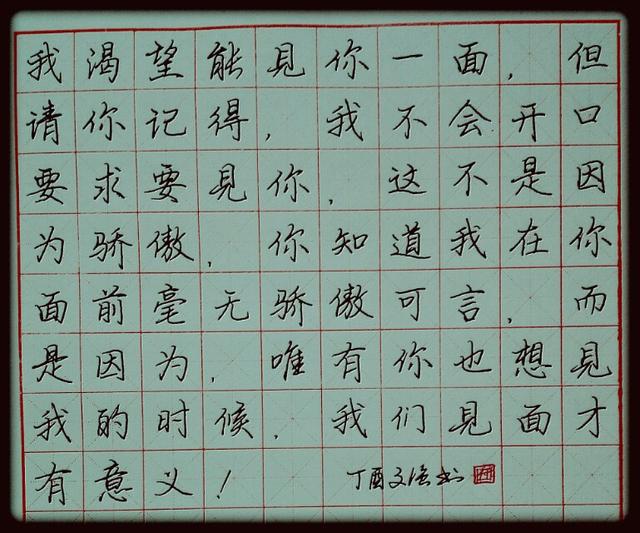 我渴望能見你一面，但
请你记得，我不会开口
要求要見你，这不是因
为骄傲，你知道我在你
面前毫无骄傲可言，而
是因为，唯有你也想見
我的时候，我们見面才
有意义！
丁酉